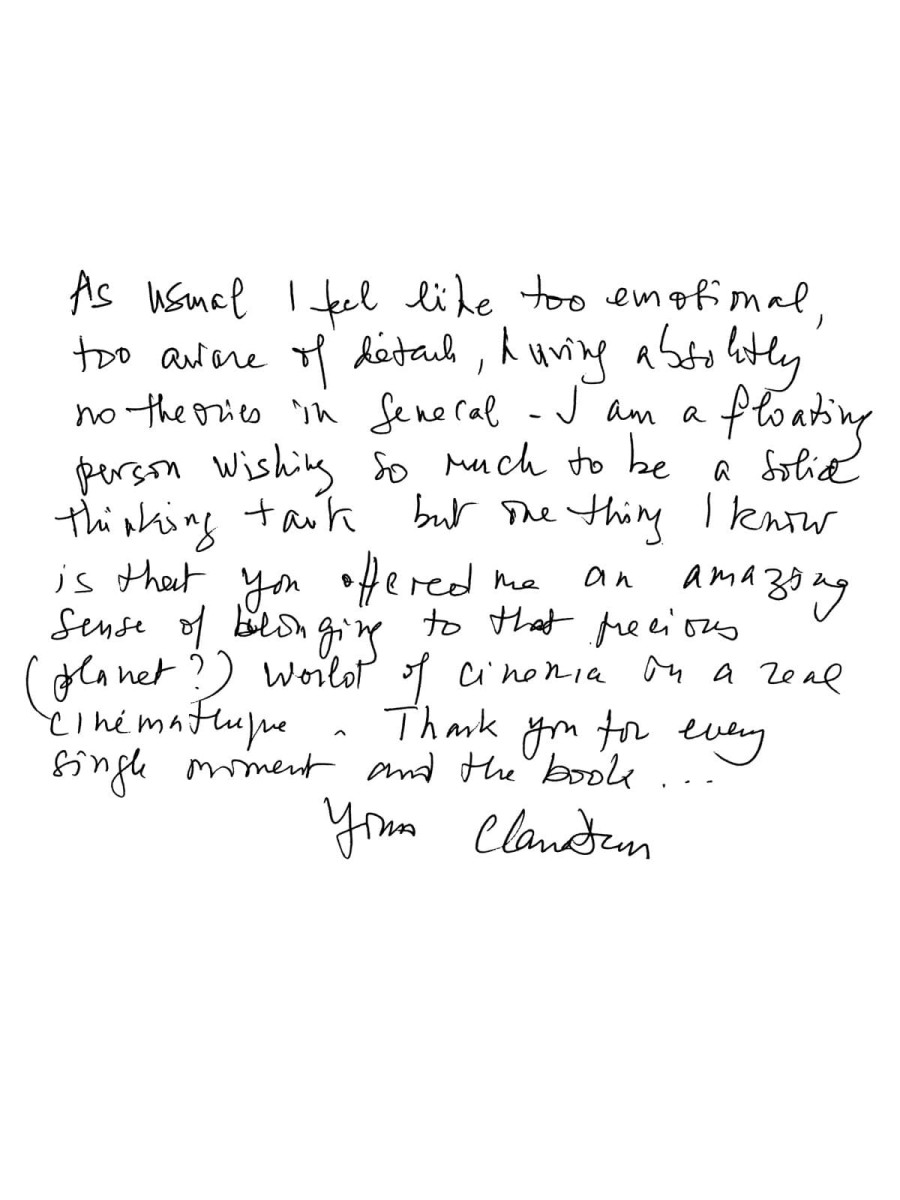 As usual I feel like too emotional,
too aware of détails, having absolutly
no theories in general - I am a floating
person wishing so much to be a solid
thinking tank but one thing I know
is that you offered me an amazing
sense of belonging to that precious
(planet?) world of cinema in a real
cinémathèque. Thank you for every
single moment and the book ...
Yours